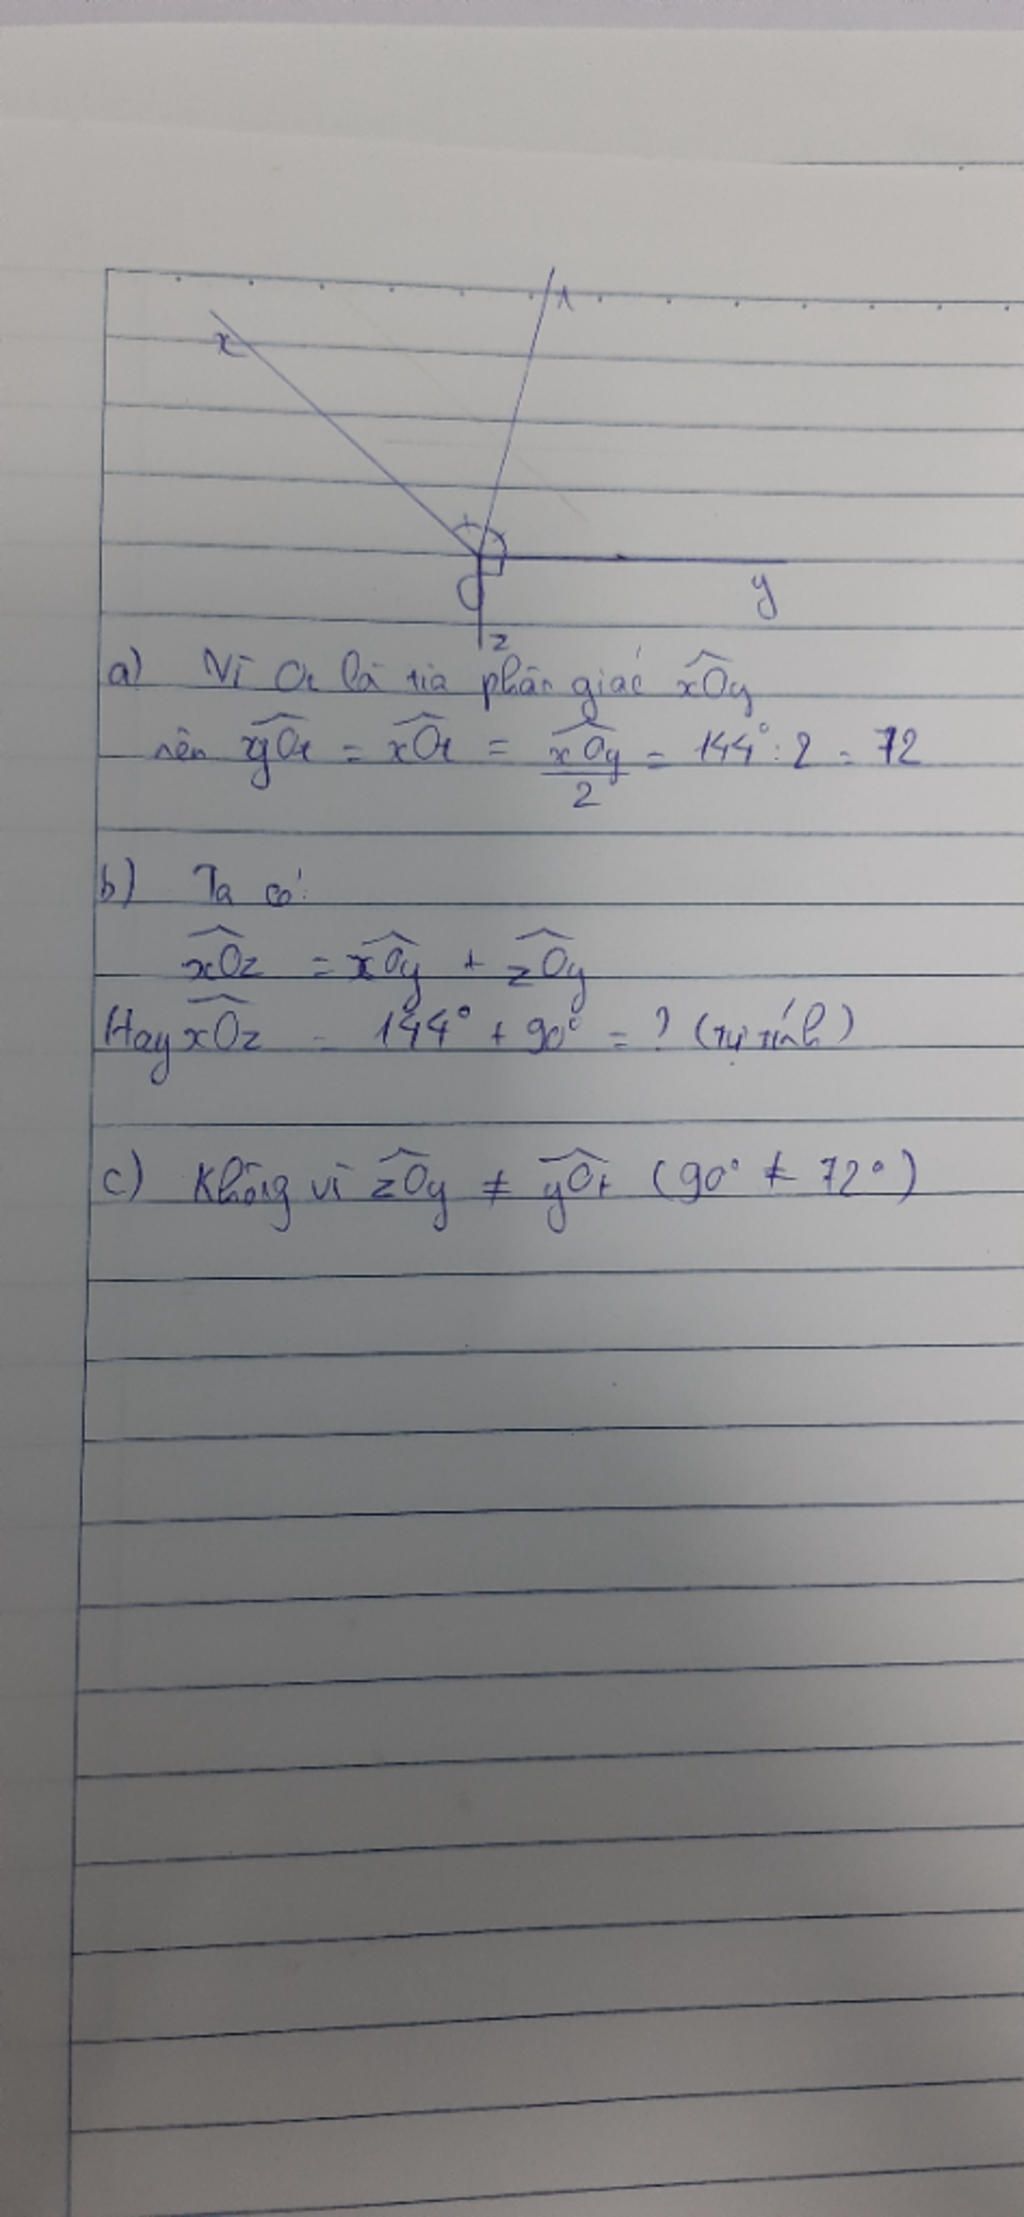 x
t
O
y
z
a) Vì Ot là tia phân giác xOy
nên yOt = xOt = xOy/2 = 144° : 2 = 72
b) Ta có:
xOz = xOy + zOy
Hay xOz = 144° + 90° = ? (tự tính)
c) Không vì zOy ≠ yOt (90° ≠ 72°)